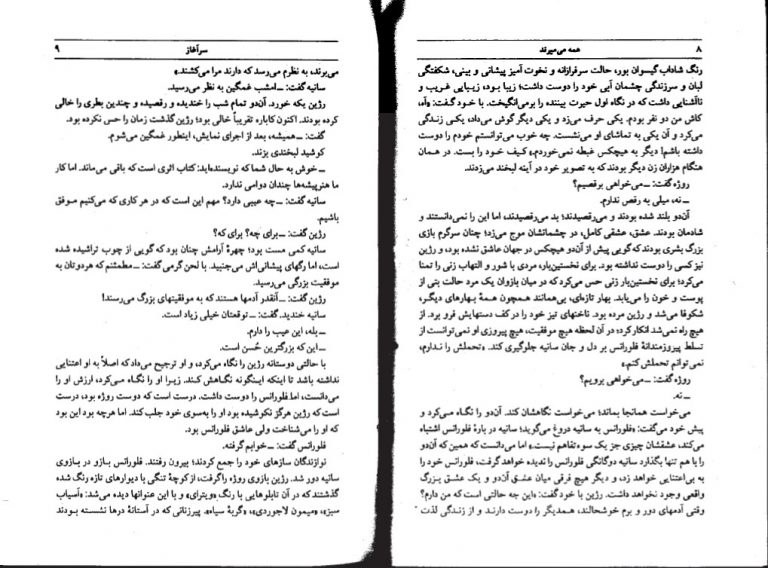 ۸ همه می‌میرند
رنگ شاداب گیسوان بور، حالت سرفرازانه و نخوت آمیز پیشانی و بینی، شکفتگی
لبان و سرزندگی چشمان آبی خود را دوست داشت؛ زیبا بود، زیبایی غریب و
ناآشنایی داشت که در نگاه اول حیرت بیننده را برمی‌انگیخت. با خود گفت: «آه،
کاش من دو نفر بودم. یکی حرف می‌زد و یکی دیگر گوش می‌داد، یکی زندگی
می‌کرد و آن یکی به تماشای او می‌نشست. چه خوب می‌توانستم خودم را دوست
داشته باشم! دیگر به هیچکس غبطه نمی‌خوردم.» کیف خود را بست. در همان
هنگام هزاران زن دیگر بودند که به تصویر خود در آینه لبخند می‌زدند.
روژه گفت: ــ می‌خواهی برقصیم؟
ــ نه، میلی به رقص ندارم.
آن‌دو بلند شده بودند و می‌رقصیدند؛ بد می‌رقصیدند، اما این را نمی‌دانستند و
شادمان بودند. عشق، عشقی کامل، در چشمانشان موج می‌زد؛ چنان سرگرم بازی
بزرگ بشری بودند که گویی پیش از آن‌دو هیچکس در جهان عاشق نشده بود، و رژین
نیز کسی را دوست نداشته بود. برای نخستین‌بار، مردی با شور و التهاب زنی را تمنا
می‌کرد؛ برای نخستین‌بار زنی حس می‌کرد که در میان بازوان یک مرد حالت بتی از
پوست و خون را می‌یابد. بهار تازه‌ای، بی‌همانند همچون همهٔ بهارهای دیگر،
شکوفا می‌شد و رژین مرده بود. ناخنهای تیز خود را در کف دستهایش فرو برد. از
هیچ راه نمی‌شد انکار کرد؛ در آن لحظه هیچ موفقیت، هیچ پیروزی او نمی‌توانست از
تسلط پیروزمندانهٔ فلورانس بر دل و جان سانیه جلوگیری کند. «تحملش را ندارم،
نمی‌توانم تحملش کنم.»
روژه گفت: ــ می‌خواهی برویم؟
ــ نه.
می‌خواست همانجا بماند؛ می‌خواست نگاهشان کند. آن‌دو را نگاه می‌کرد و
پیش خود می‌گفت: «فلورانس به سانیه دروغ می‌گوید؛ سانیه در بارهٔ فلورانس اشتباه
می‌کند، عشقشان چیزی جز یک سوءتفاهم نیست.» اما می‌دانست که همین که آن‌دو
را با هم تنها بگذارد سانیه دوگانگی فلورانس را ندیده خواهد گرفت، فلورانس خود را
به بی‌اعتنایی خواهد زد، و دیگر هیچ فرقی میان عشق آن‌دو و یک عشق بزرگ
واقعی وجود نخواهد داشت. رژین با خود گفت: «این چه حالتی است که من دارم؟
وقتی آدمهای دور و برم خوشحالند، همدیگر را دوست دارند و از زندگی لذت
سرآغاز ۹
می‌برند، به نظرم می‌رسد که دارند مرا می‌کشند.»
سانیه گفت: ــ امشب غمگین به نظر می‌رسید.
رژین یکه خورد. آن‌دو تمام شب را خندیده و رقصیده و چندین بطری را خالی
کرده بودند. اکنون کاباره تقریباً خالی بود؛ رژین گذشت زمان را حس نکرده بود.
گفت: ــ همیشه، بعد از اجرای نمایش، اینطور غمگین می‌شوم.
کوشید لبخندی بزند.
ــ خوش به حال شما که نویسنده‌اید: کتاب اثری است که باقی می‌ماند. اما کار
ما هنرپیشه‌ها چندان دوامی ندارد.
سانیه گفت: ــ چه عیبی دارد؟ مهم این است که در هر کاری که می‌کنیم موفق
باشیم.
رژین گفت: ــ برای چه؟ برای که؟
سانیه کمی مست بود؛ چهرهٔ آرامش چنان بود که گویی از چوب تراشیده شده
است، اما رگهای پیشانی‌اش می‌جنبید. با لحن گرمی گفت: ــ مطمئنم که هردوتان به
موفقیت بزرگی می‌رسید.
رژین گفت: ــ آنقدر آدمها هستند که به موفقیتهای بزرگ می‌رسند!
سانیه خندید. گفت: ــ توقعتان خیلی زیاد است.
ــ بله، این عیب را دارم.
ــ این که بزرگترین حُسن است.
با حالتی دوستانه رژین را نگاه می‌کرد، و او ترجیح می‌داد که اصلاً به او اعتنایی
نداشته باشد تا اینکه اینگونه نگاهش کند. زیرا او را نگاه می‌کرد، ارزش او را
می‌دانست، اما فلورانس را دوست داشت. درست است که دوست روژه بود، درست
است که رژین هرگز نکوشیده بود او را به‌سوی خود جلب کند. اما هرچه بود این بود
که او را می‌شناخت ولی عاشق فلورانس بود.
فلورانس گفت: ــ خوابم گرفته.
نوازندگان سازهای خود را جمع کردند؛ بیرون رفتند. فلورانس بازو در بازوی
سانیه دور شد. رژین بازوی روژه را گرفت، از کوچهٔ تنگی با دیوارهای تازه رنگ شده
گذشتند که در آن تابلوهایی با رنگ ویترای و با این عنوانها دیده می‌شد: «آسیاب
سبز»، «میمون لاجوردی»، «گربهٔ سیاه». پیرزنانی که در آستانهٔ درها نشسته بودند